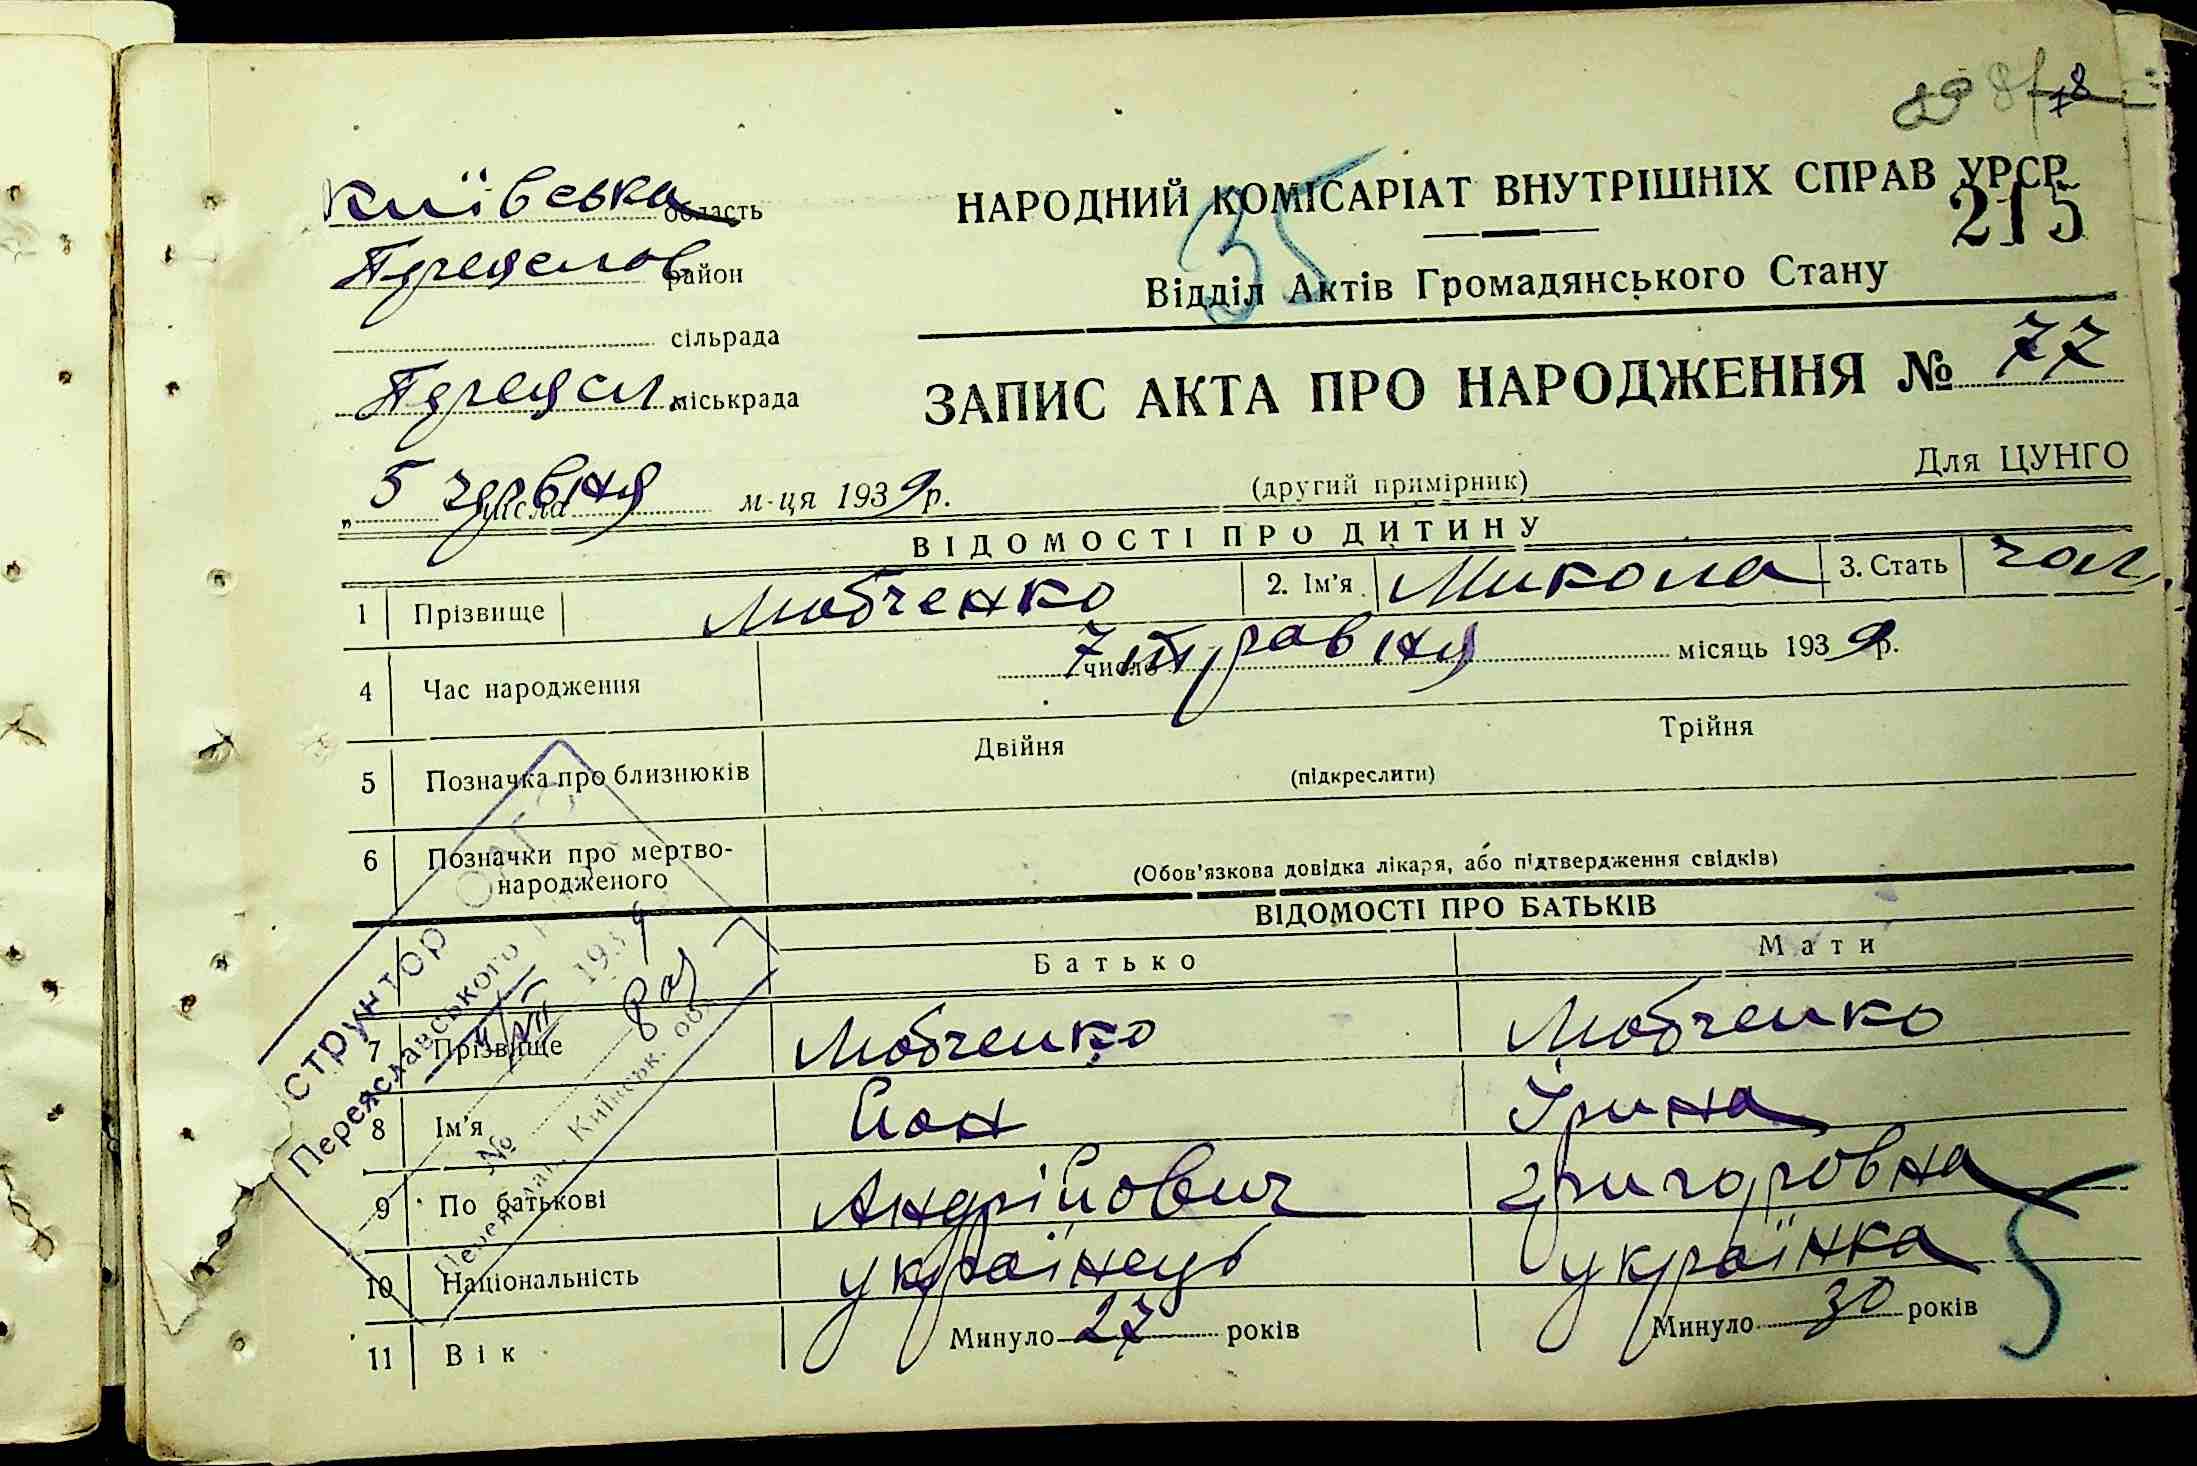 Київська область
НАРОДНИЙ КОМІСАРІАТ ВНУТРІШНІХ СПРАВ УРСР
215
35
Переяслов район
Відділ Актів Громадянського Стану
сільрада
Переясл. міськрада
ЗАПИС АКТА ПРО НАРОДЖЕННЯ № 77
„ 5 числа червня м-ця 1939 р.
(другий примірник)
Для ЦУНГО
ВІДОМОСТІ ПРО ДИТИНУ
1 Прізвище Любченко 2. Ім'я Микола 3. Стать чол.
4 Час народження 7 число травня місяць 1939 р.
5 Позначка про близнюків Двійня Трійня
(підкреслити)
6 Позначки про мертво-
народженого
(Обов'язкова довідка лікаря, або підтвердження свідків)
ВІДОМОСТІ ПРО БАТЬКІВ
Батько Мати
7 Прізвище Любченко Любченко
8 Ім'я Йон Ірина
9 По батькові Андрійович Григоровна
10 Національність українець українка
11 Вік Минуло 27 років Минуло 30 років
5
Переяславського
193
№
Київськ. обл.